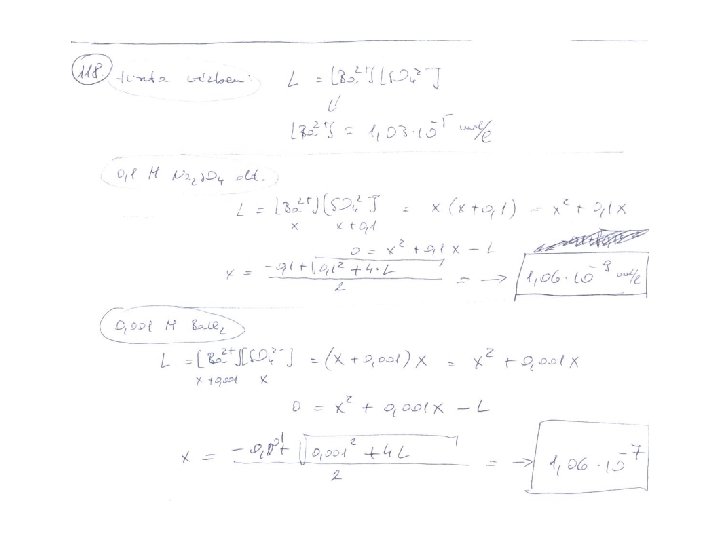 118 tiszta vízben: L = [Ba²⁺][SO₄²⁻]
⇓
[Ba²⁺] = 1,03·10⁻⁵ mol/l
0,1 M Na₂SO₄ old.
L = [Ba²⁺][SO₄²⁻] = x(x+0,1) = x² + 0,1x
x x+0,1
0 = x² + 0,1x - L
x = (-0,1 + √(0,1² + 4·L)) / 2 = → 1,06·10⁻⁹ mol/l
0,001 M BaCl₂
L = [Ba²⁺][SO₄²⁻] = (x + 0,001) x = x² + 0,001x
x+0,001 x
0 = x² + 0,001x - L
x = (-0,001 + √(0,001² + 4L)) / 2 = → 1,06·10⁻⁷